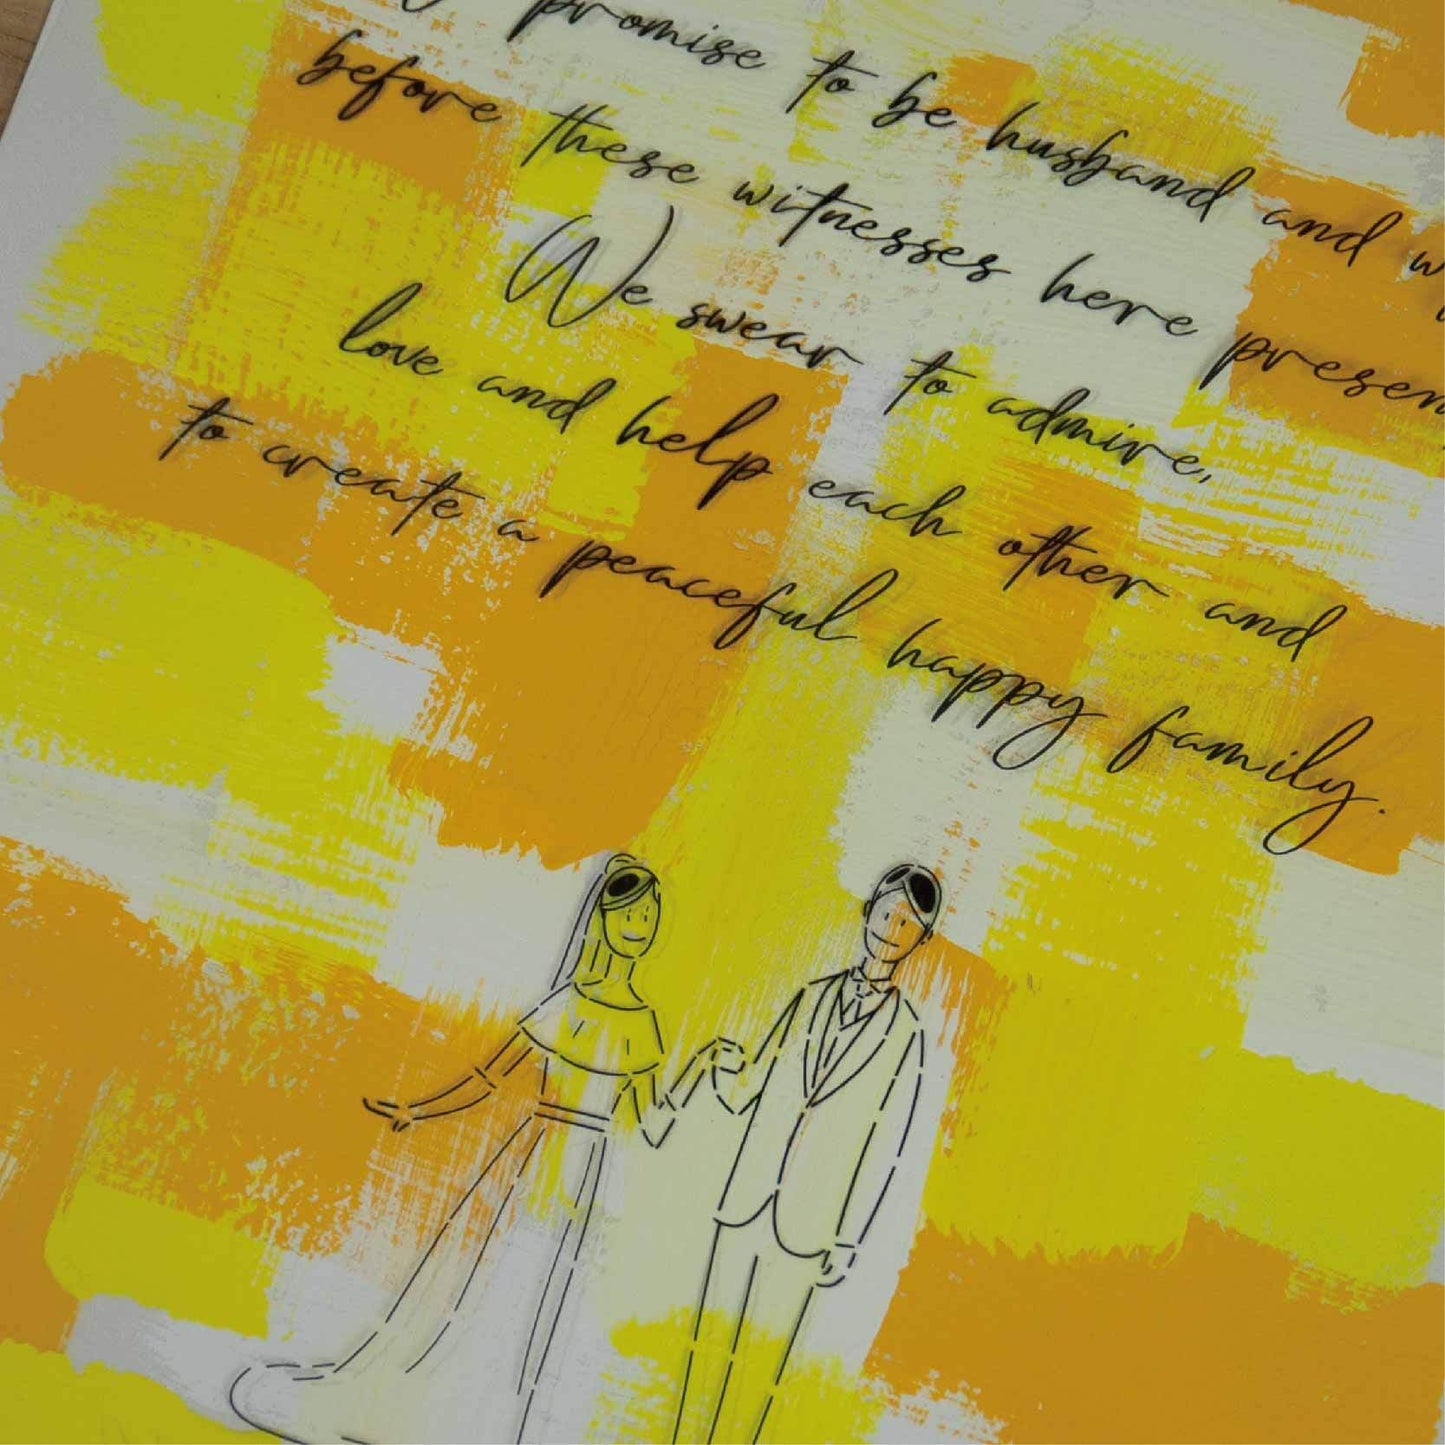 promise to be husband and
before these witnesses here
We swear to admire,
love and help each other and
to create a peaceful happy family.